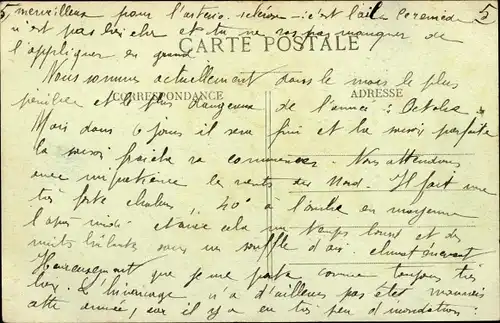 merveilleux pour l'arterio-sclérose : c'est l'ail
n'est pas bien cher et tu ne vas pas manquer de
CARTE POSTALE
l'appliquer en grand
Nous sommes actuellement dans le mois le plus
CORRESPONDANCE
ADRESSE
pénible et le plus dangereux de l'année : Octobre
Mais dans 6 jours il sera fini et la saison parfaite
la saison fraîche va commencer. Nous attendons
avec impatience le vent du Nord. Il fait une
très forte chaleur, 40° à l'ombre en moyenne
l'après midi et avec cela un temps lourd et des
nuits brûlantes sans un souffle d'air. climat énervant
Heureusement que je me porte comme toujours très
bien. L'hivernage n'a d'ailleurs pas été mauvais
cette année, car il y a eu très peu d'inondations :